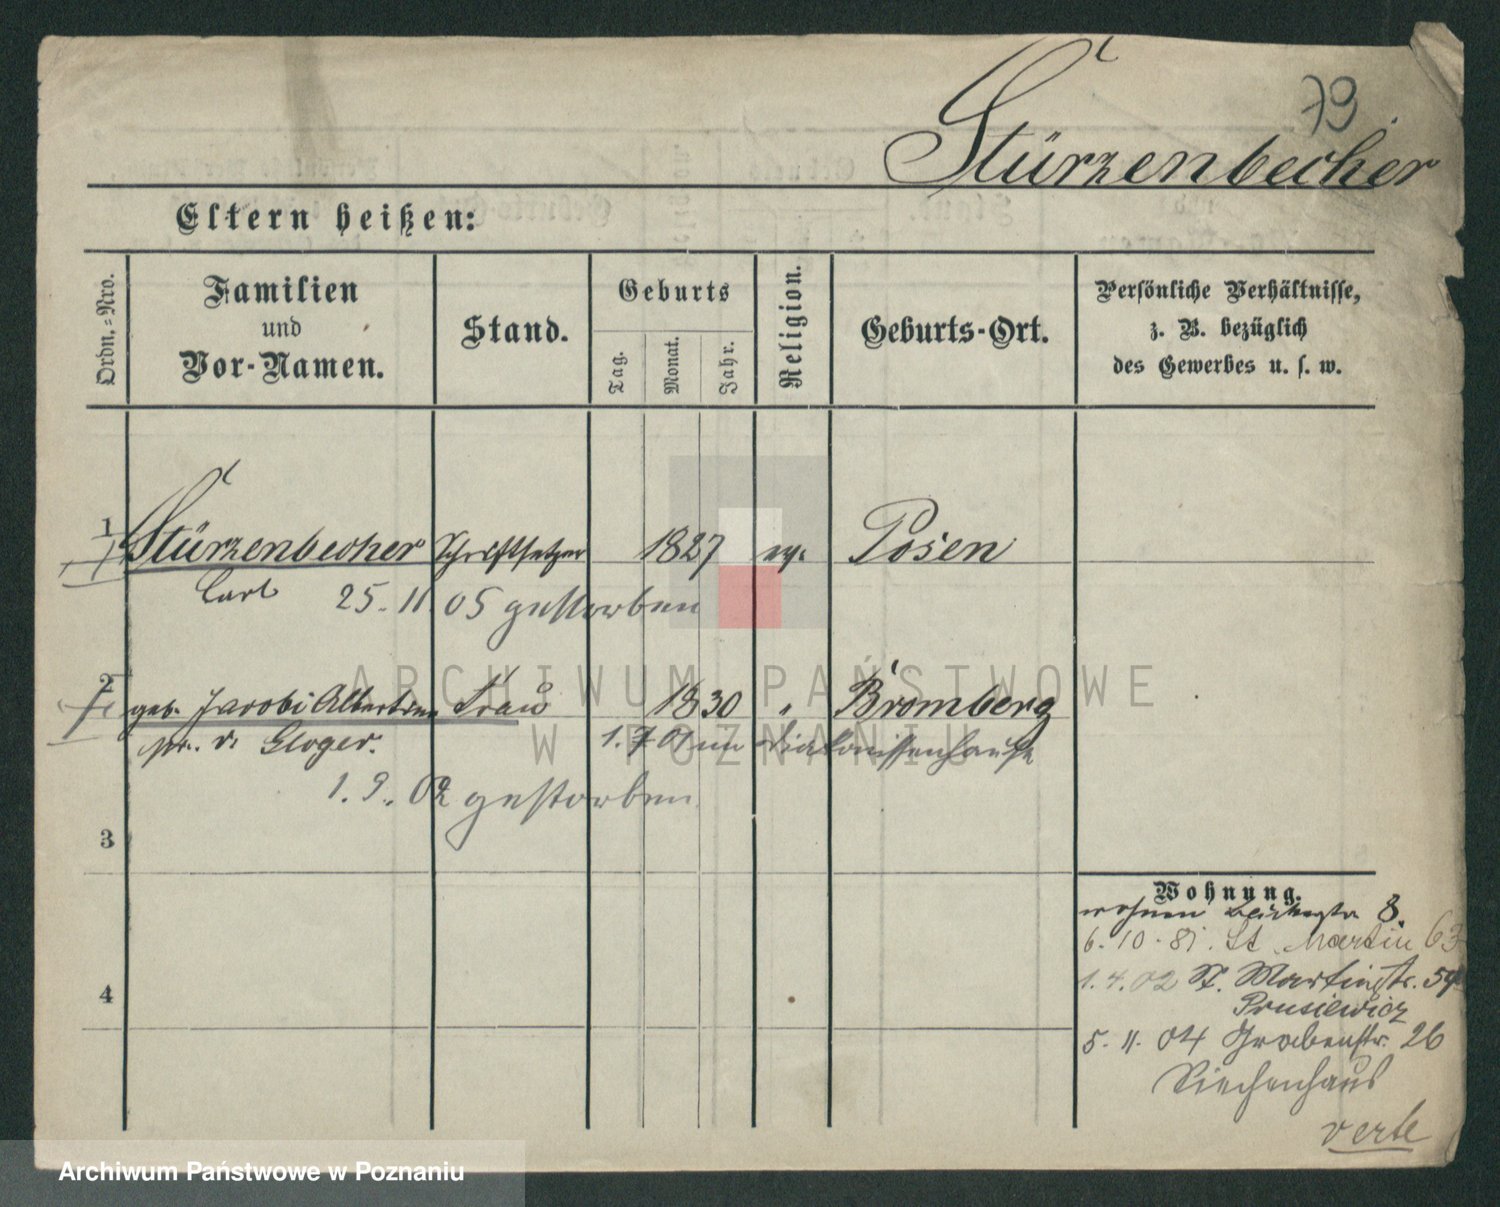 79
Stürzenbecher
Eltern heißen:
Ordn.=Nro.
Familien
und
Vor-Namen.
Stand.
Geburts
Tag.
Monat.
Jahr.
Religion.
Geburts-Ort.
Persönliche Verhältnisse,
z. B. bezüglich
des Gewerbes u. s. w.
1 Stürzenbecher Schriftsetzer 1827 ev. Posen
Carl 25. 11. 05 gestorben
ARCHIWUM PAŃSTWOWE
2 geb. Jacobi Albertine Frau 1830 " Bromberg
v. Gloger. 1. 7 01 im Diakonissenhause
W POZNANIU
1. 9. 02 gestorben
3
Wohnung.
wohnen 8.
6. 10. 81. St. Martin 63
1. 4. 02 St. Martinstr. 59
Prusiewicz
4
5. 11. 04 Grabenstr. 26
Siechenhaus
verte
Archiwum Państwowe w Poznaniu